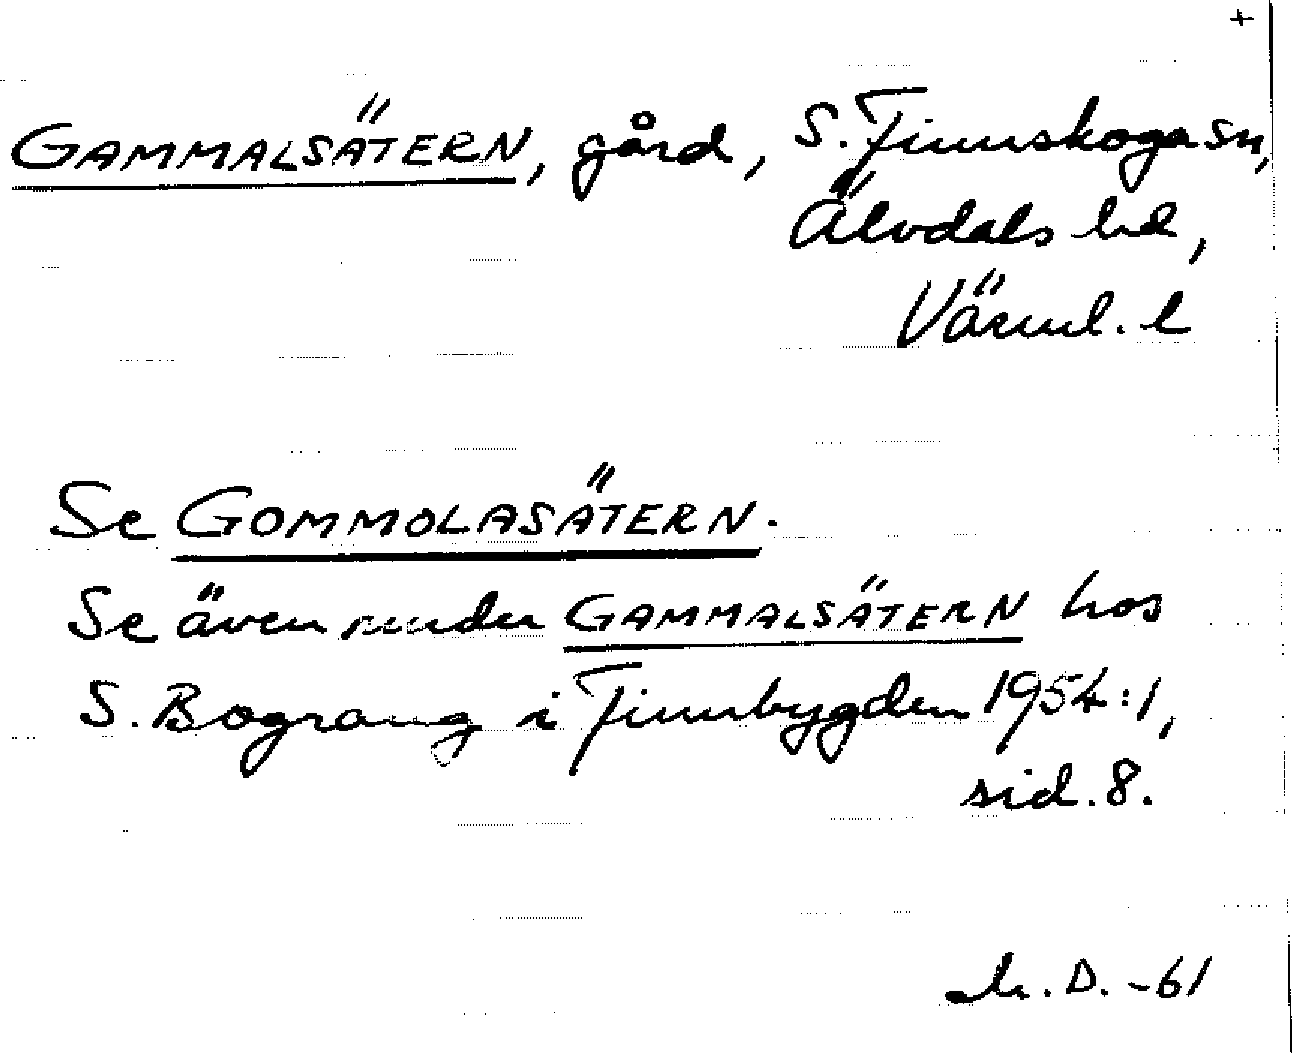 +
GAMMALSÄTERN, gård, S. Finnskoga sn,
Älvdals hd,
Värml. l
Se GOMMOLASÄTERN.
Se även under GAMMALSÄTERN hos
S. Bograng i Finnbygden 1954:1,
sid. 8.
D. -61